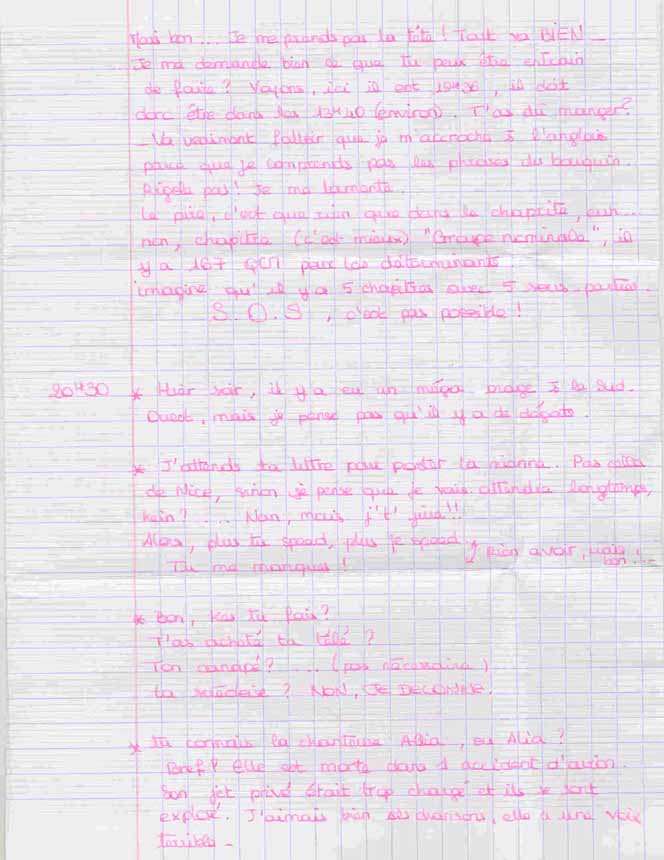 Mais bon.... Je me prends pas la tête ! Tout va BIEN _
Je me demande bien ce que tu peux être entrain
de faire ? Voyons, ici il est 19H36, il doit
donc être dans les 13H40 (environ). T'as dû manger ?
_ Va vraiment falloir que je m'accroche à l'anglais
parce que je comprends pas les phrases du bouquin.
Rigole pas ! Je me lamente..
Le pire, c'est que rien que dans le chaprite, euh...
non, chapitre (c'est mieux) "Groupe nominale", il
y a 167 QCM pour les déterminants.
imagine qu'il y a 5 chapitres avec 5 sous-parties.
S.O.S, c'est pas possible !
20H30 * Hier soir, il y a eu un méga orage à la Sud.
Ouest, mais je pense pas qu'il y a de dégats.
* J'attends ta lettre pour poster la mienne. Pas celle
de Nice, sinon je pense que je vais attendre longtemps,
hein ? .... Nan, mais j't' jure !!
Alors, plus tu speed, plus je speed. Rien avoir, mais
bon !...
Tu me manques !
* Bon, kes tu fais ?
T'as acheté ta télé ?
Ton canapé ? .... (pas nécessaire)
ta suédoise ? NON, JE DECONNE.
* Tu connais la chanteuse Allia, ou Alia ?
Bref ! Elle est morte dans 1 accident d'avion.
Son jet privé était trop chargé et ils se sont
explosé. J'aimais bien ses chansons, elle a une voix
terrible _